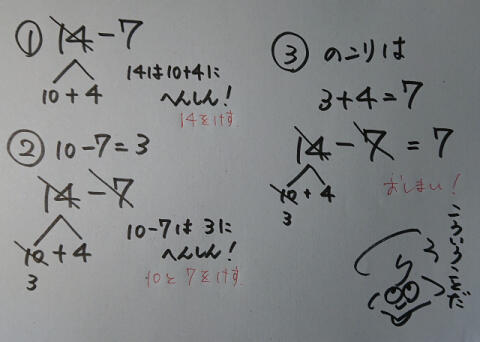 ① 14-7
10+4
14は10+4に
へんしん!
14をけす
② 10-7=3
14-7
10+4
3
10-7は3に
へんしん!
10と7をけす
③ のこりは
3+4=7
14-7=7
10+4
3
おしまい!
こういうことだ